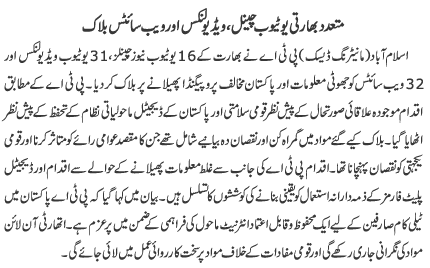 متعدد بھارتی یوٹیوب چینل، ویڈیو لنکس اور ویب سائٹس بلاک
اسلام آباد (مانیٹرنگ ڈیسک) پی ٹی اے نے بھارت کے 16 یوٹیوب نیوز چینلز، 31 یوٹیوب ویڈیو لنکس اور
32 ویب سائٹس کو جھوٹی معلومات اور پاکستان مخالف پروپیگنڈا پھیلانے پر بلاک کر دیا۔ پی ٹی اے کے مطابق
اقدام موجودہ علاقائی صورتحال کے پیش نظر قومی سلامتی اور پاکستان کے ڈیجیٹل ماحولیاتی نظام کے تحفظ کے پیش نظر
اٹھایا گیا۔ بلاک کیے گئے مواد میں گمراہ کن اور نقصان دہ بیانیے شامل تھے جن کا مقصد عوامی رائے کو متاثر کرنا اور قومی
یکجہتی کو نقصان پہنچانا تھا۔ اقدام پی ٹی اے کی جانب سے غلط معلومات پھیلانے کے حوالے سے اقدام اور ڈیجیٹل
پلیٹ فارمز کے ذمہ دارانہ استعمال کو یقینی بنانے کی کوششوں کا تسلسل ہیں۔ بیان میں کہا گیا کہ پی ٹی اے پاکستان میں
ٹیلی کام صارفین کے لیے ایک محفوظ و قابل اعتماد انٹرنیٹ ماحول کی فراہمی کے ضمن میں پر عزم ہے۔ اتھارٹی آن لائن
مواد کی نگرانی جاری رکھے گی اور قومی مفادات کے خلاف مواد پر سخت کارروائی عمل میں لائی جائے گی۔